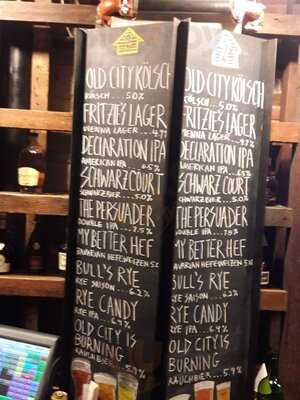 OLD CITY KÖLSCH
KÖLSCH....5.0%
FRITZIE'S LAGER
VIENNA LAGER....4.9%
DECLARATION IPA
AMERICAN IPA....6.5%
SCHWARZ COURT
SCHWARZBIER....5.0%
THE PERSUADER
DOUBLE IPA....7.5%
MY BETTER HEF
BAVARIAN HEFEWEIZEN 5.0
BULL'S RYE
RYE SAISON....6.2%
RYE CANDY
RYE IPA....6.4%
OLD CITY IS
BURNING
RAUCHBIER....5.9%
OLD CITY KÖLSCH
KÖLSCH....5.0%
FRITZIE'S LAGER
VIENNA LAGER....4.9%
DECLARATION IPA
AMERICAN IPA....6.5%
SCHWARZ COURT
SCHWARZBIER....5.0%
THE PERSUADER
DOUBLE IPA....7.5%
MY BETTER HEF
BAVARIAN HEFEWEIZEN 5.0
BULL'S RYE
RYE SAISON....6.2%
RYE CANDY
RYE IPA....6.4%
OLD CITY IS
BURNING
RAUCHBIER....5.9%